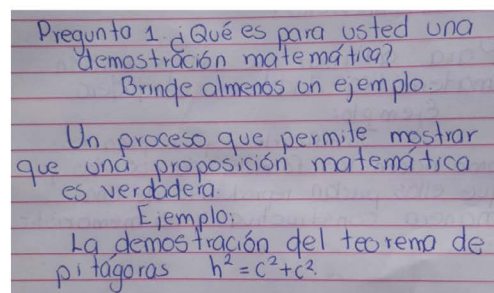 Pregunta 1. ¿Qué es para usted una
demostración matemática?
Brinde almenos un ejemplo.
Un proceso que permite mostrar
que una proposición matemática
es verdadera.
Ejemplo:
La demostración del teorema de
pitágoras h² = c² + c².